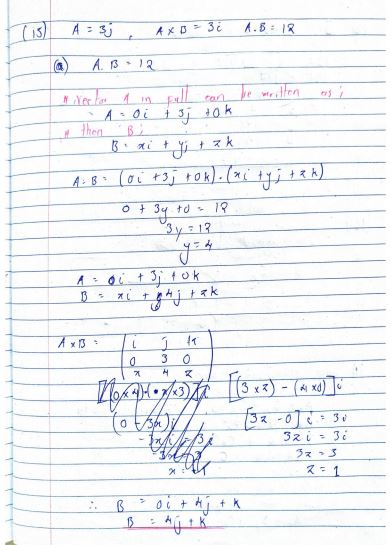 (15) A = 3j , A × B = 3i A.B = 12
(a) A. B = 12
# vector A in full can be written as;
- A = 0i + 3j + 0k
# then B;
B = xi + yj + zk
A.B = (0i + 3j + 0k).(xi + yj + zk)
0 + 3y + 0 = 12
3y = 12
y = 4
A = 0i + 3j + 0k
B = xi + 4j + zk
A×B = | i j k
0 3 0
x 4 z |
[(3×z) - (4×0)] i
[3z - 0] i = 3i
3zi = 3i
3z = 3
z = 1
(0 - 3x) i
-3xi = 3i
-3x = 3
x = -1
∴ B = 0i + 4j + k
B = 4j + k